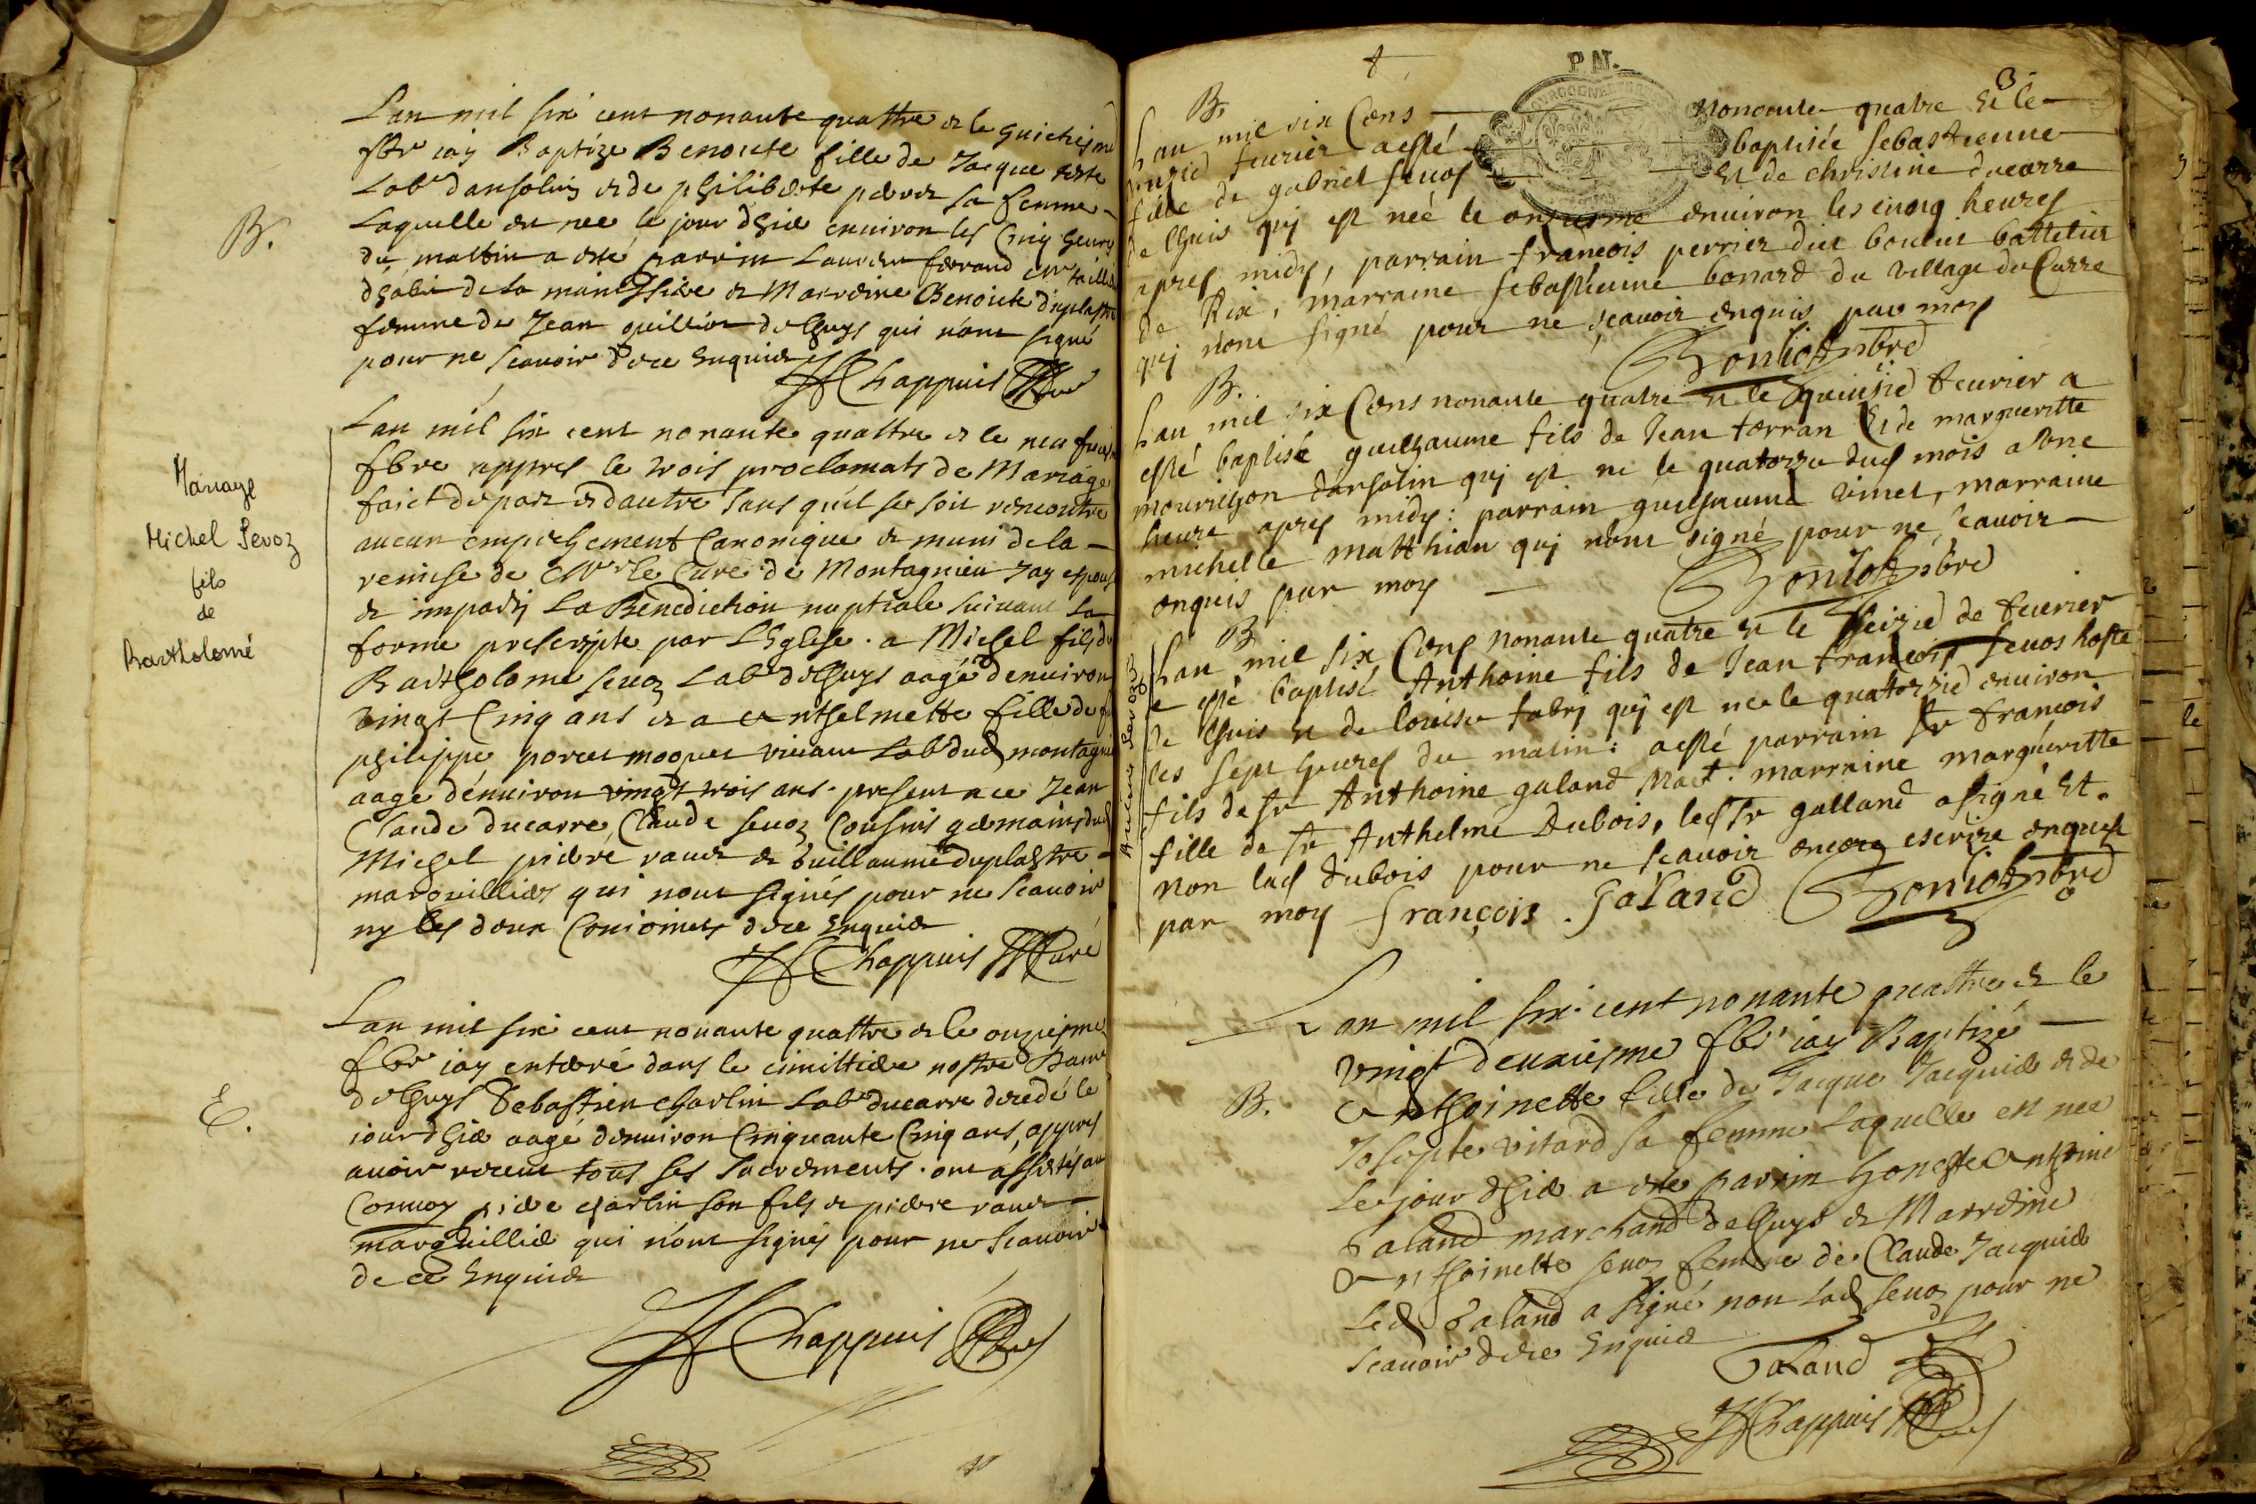 Lan mil six cent nonante quattre et le huictiesme
fbr iay Baptize Benoite fille de Jacque
Labr dansolin et de philiberte sa femme
Laquelle est nee le jour dhier environ les Cinq heures
du mattin a esté parrin Laurent ferrand
dhabit de la et Marreine Benoite duplastre
femme de Jean de Lhuys qui nont signé
pour ne scavoir de ce Enquis
Chappuis Curé
B.
Lan mil six cent nonante quattre et le neufviesme
fbre appres le trois proclamats de Mariage
faict de part et dautre sans quil se soit rencontré
aucun empeschement Canonique et muni de la
remise de Mr le Curé de Montagnieu Jay espousé
et imparty La Benediction nuptiale suivant La
forme prescripte par LEglise. a Michel fils de
Bartholome sevoz Labr de Lhuys aagé denviron
vingt Cinq ans et a Anthelmette fille de
philippe porcet moquet vivant Labr dud montagnieu
aage denviron vingt trois ans. present a ce Jean
Claude ducarre, Claude sevoz Cousins germains dud
Michel pierre et Guillaume duplastre
marguilliers qui nont signés pour ne scavoir
ny les deux Conioincts de ce Enquis
Chappuis Curé
Mariage
Michel Sevoz
fils
de
Bartholomé
Lan mil six cent nonante quattre et le onziesme
fbr iay enterré dans le cimittiere nostre Dame
de Lhuys Sebastien Charlin Labr ducarre decedé le
iour dhier aagé denviron Cinquante Cinq ans, appres
avoir receu tous ses sacrements. ont assistés au
Convoy pierre charlin son fils et pierre
marguillier qui nont signés pour ne scavoir
de ce Enquis
Chappuis Curé
E.
P.N.
3
B.
Lan mil six Cens nonante quatre Et le
onzie feurier a esté baptisée sebastienne
fille de gabriel sevos Et de christine ducarre
de Lhuis qui est née le onziesme environ les cinq heures
apres midy, parrain francois perrier dict battelier
de Rix, marraine sebastienne bonard du village du Carre
qui nont signé pour ne scavoir enquis par moy
B.
Lan mil six Cens nonante quatre et le quinzie feurier a
esté baptisé guilhaume fils de Jean ferran Et de margueritte
dansolin qui est né le quatorze dud mois a Une
heure apres midy: parrain guilhaume vinet, marraine
michelle Matthian qui nont signé pour ne scavoir
enquis par moy
B
Lan mil six Cens nonante quatre et le seizie de feurier
a esté baptisé Anthoine fils de Jean francois sevos hoste
de Lhuis et de louise fabri qui est né le quatorzie environ
les sept heures du matin: a esté parrain Sr francois
fils de Sr Anthoine galand Mart. marraine margueritte
fille de Sr Anthelme Dubois, led Sr galland a signé Et
non lad dubois pour ne scavoir encore escrire enquise
par moy françois . Galand
Lan mil six cent nonante quattre et le
vingt deuxiesme fbr iay Baptizé
Anthoinette fille de Jacque Jacquier et de
Josepte vitard sa femme Laquelle est nee
Le jour dhier a este parrin honeste Anthoine
Galand marchand de Lhuys et Marreine
Anthoinette sevoz femme de Claude Jacquier
Led Galand a signé non Lad sevoz pour ne
scavoir de ce Enquise
B.
Galand
Chappuis Curé